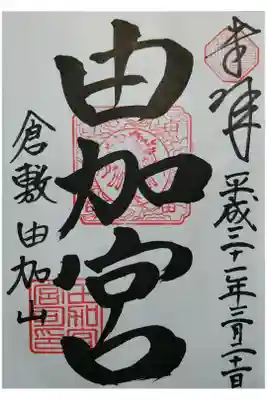 奉拝
平成三十一年三月二十一日
由加宮
倉敷 由加山